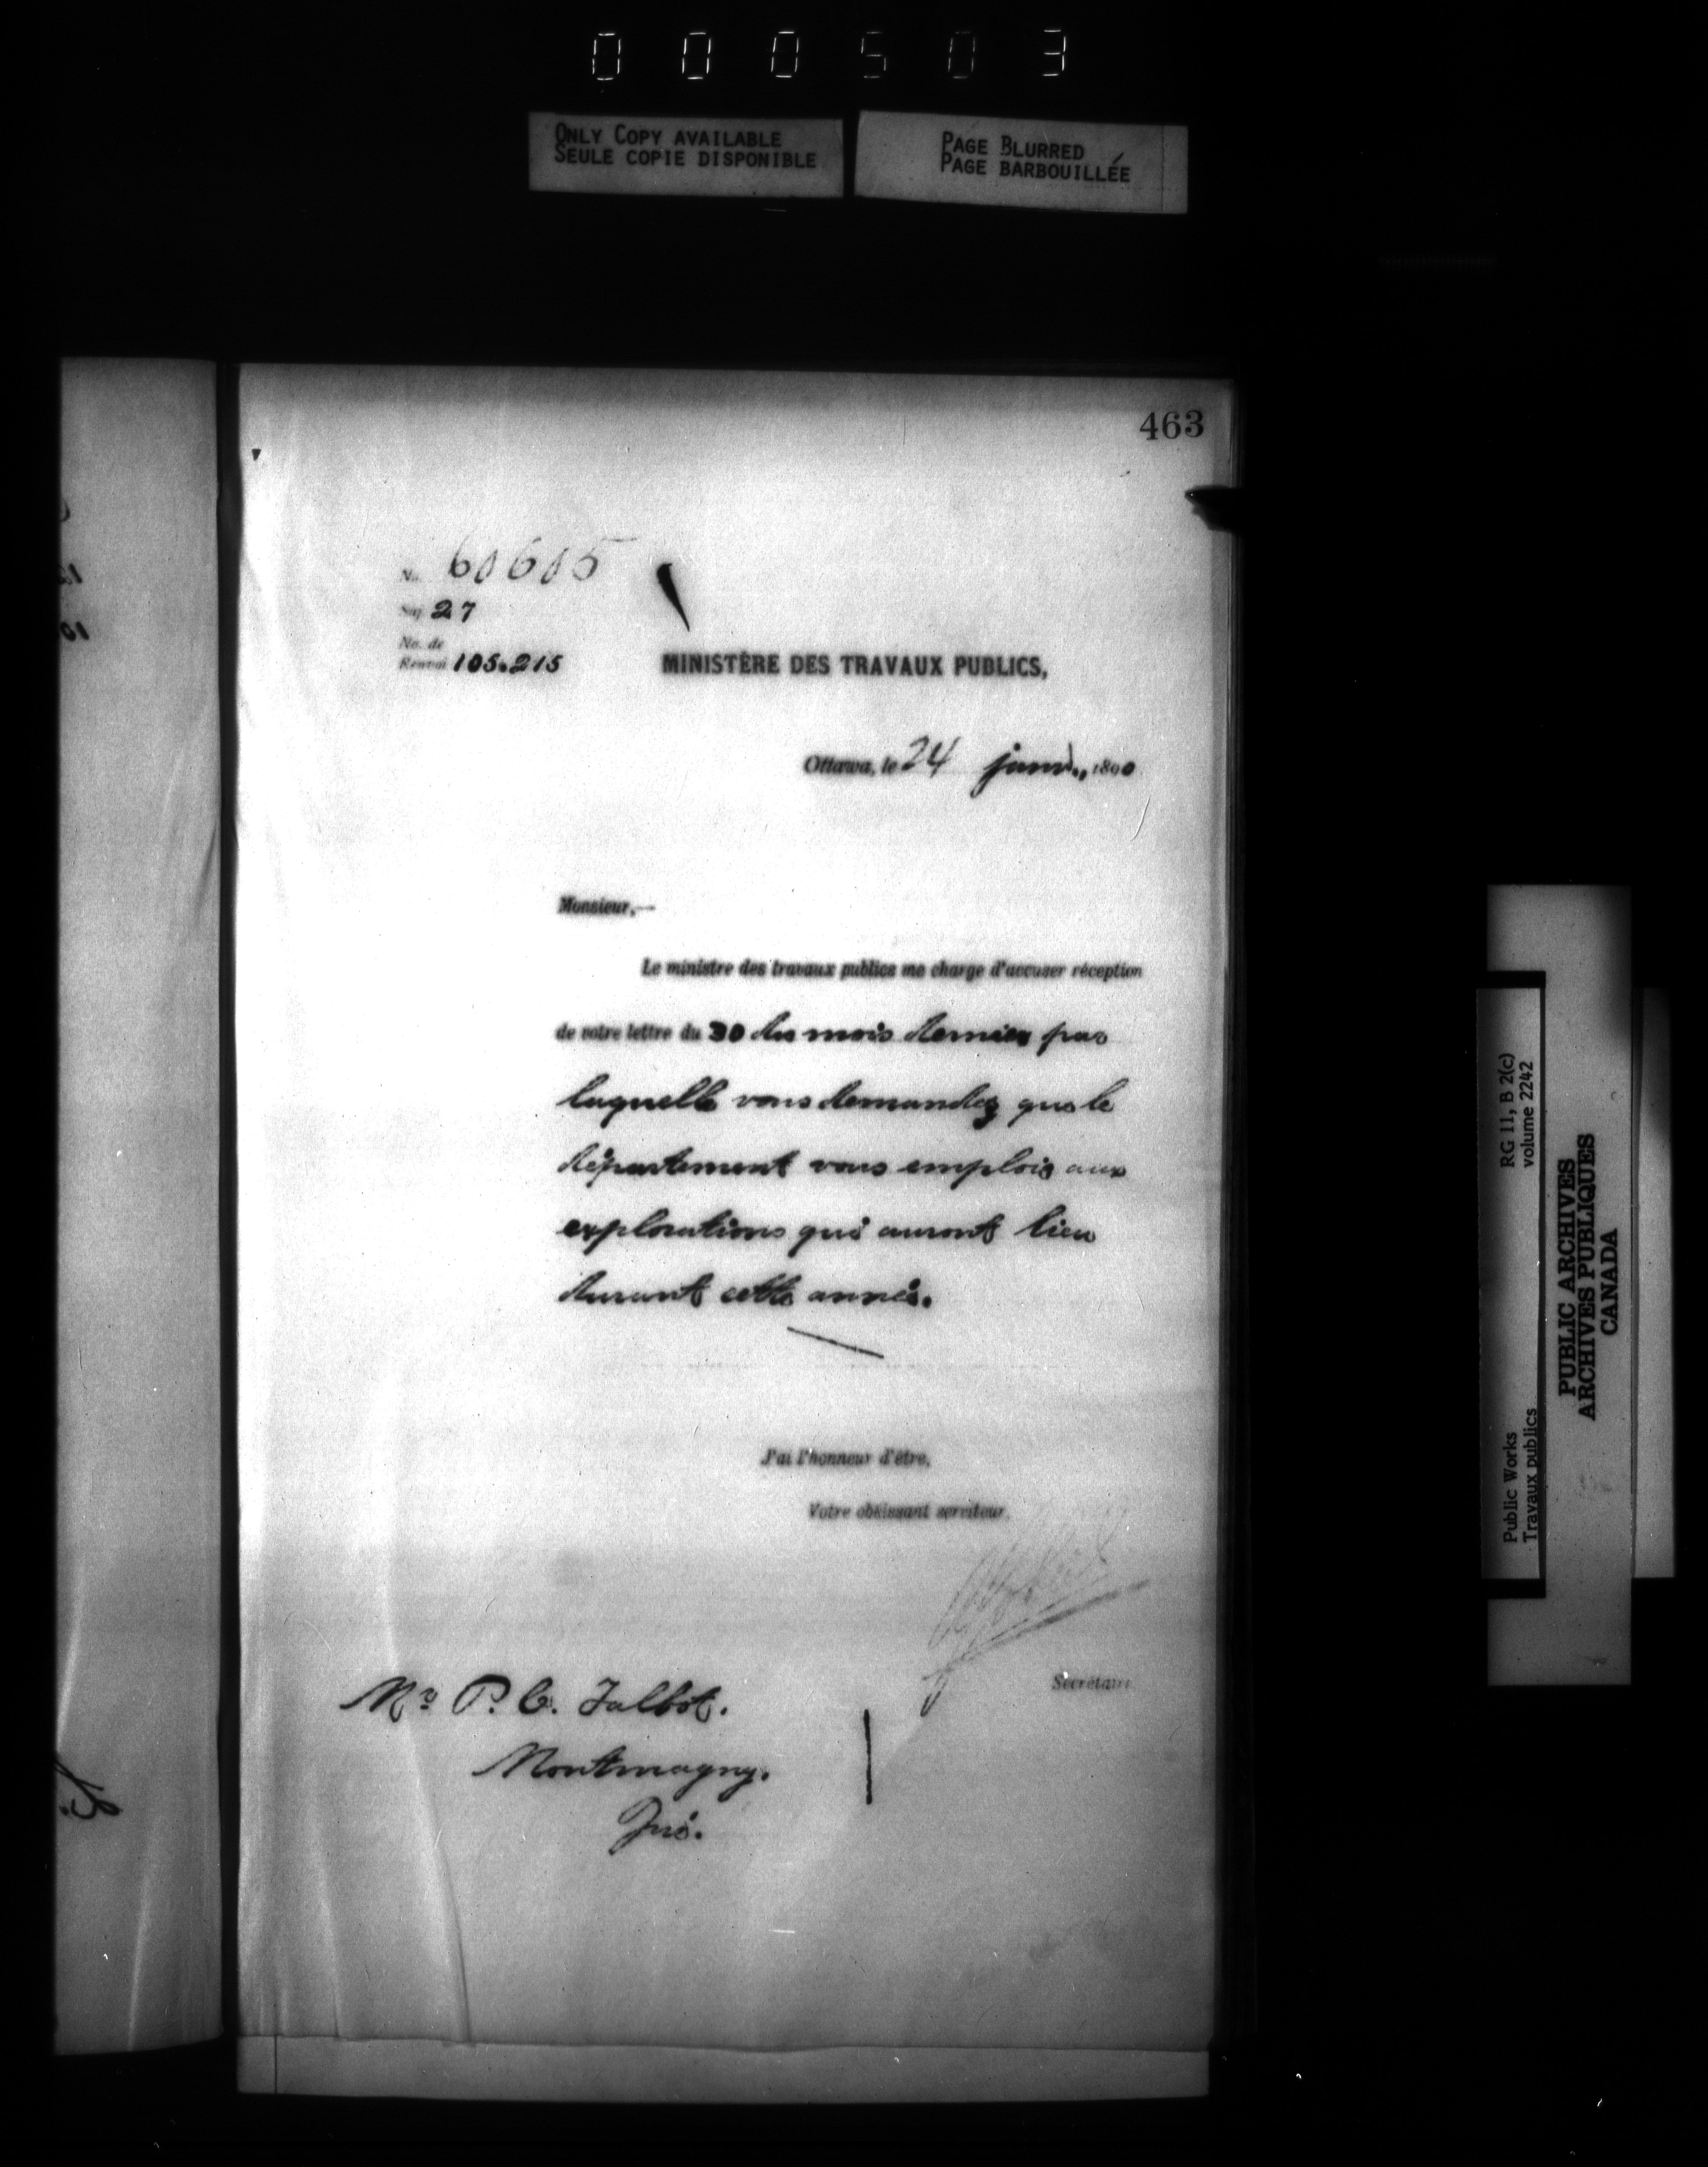 000503
ONLY COPY AVAILABLE
SEULE COPIE DISPONIBLE
PAGE BLURRED
PAGE BARBOUILLÉE
463
No. 60605
Suj. 27
No. de
Renvoi 105.215
MINISTÈRE DES TRAVAUX PUBLICS,
Ottawa, le 24 janv., 1890
Monsieur,—
Le ministre des travaux publics me charge d'accuser réception
de votre lettre du 30 du mois dernier par
laquelle vous demandez que le
département vous emploie aux
explorations qui auront lieu
durant cette année.
J'ai l'honneur d'être,
Votre obéissant serviteur,
Secrétaire
Mr P. C. Talbot.
Montmagny.
Qué.
Public Works
Travaux publics
RG 11, B 2(c)
volume 2242
PUBLIC ARCHIVES
ARCHIVES PUBLIQUES
CANADA